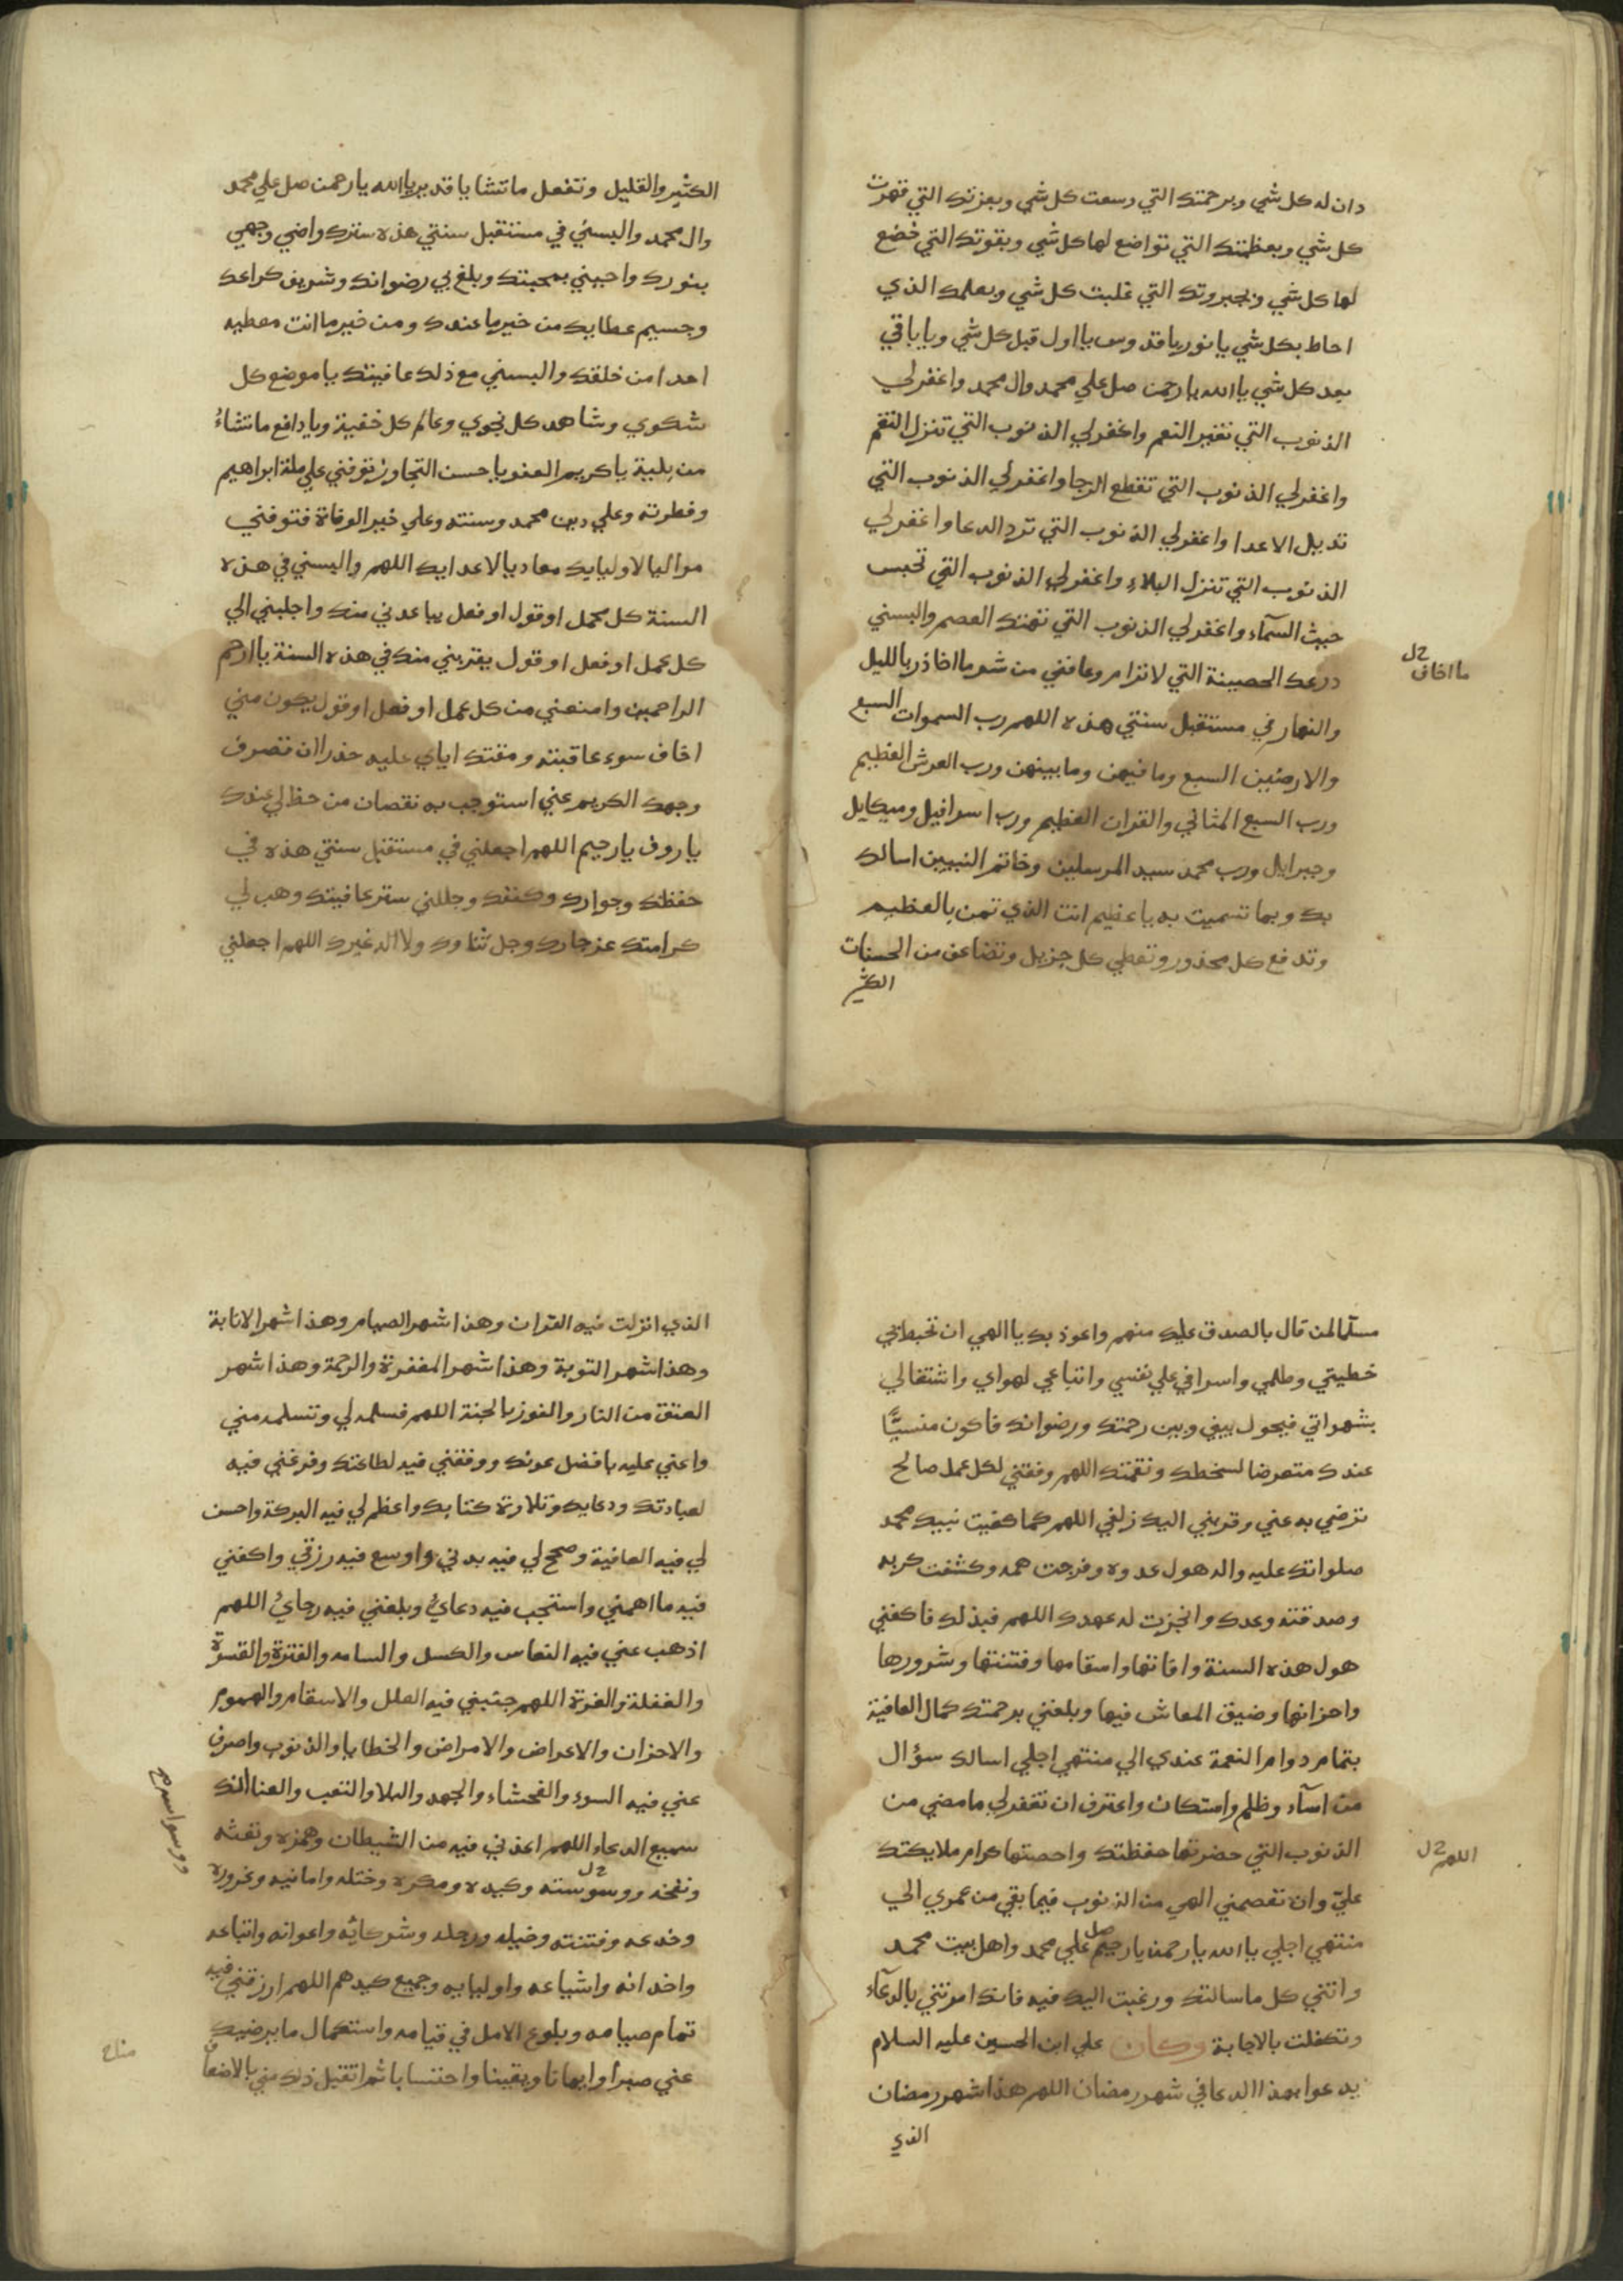 دان له كل شي وبرحمتك التي وسعت كل شي وبعزتك التي قهرت
كل شي وبعظمتك التي تواضع لها كل شي وبقوتك التي خضع
لها كل شي وبجبروتك التي غلبت كل شي وبعلمك الذي
احاط بكل شي يا نور يا قدوس يا اول قبل كل شي ويا باقي
بعد كل شي يا الله يا رحمن صل علي محمد وال محمد واغفرلي
الذنوب التي تغير النعم واغفرلي الذنوب التي تنزل النقم
واغفرلي الذنوب التي تقطع الرجا واغفرلي الذنوب التي
تديل الاعدا واغفرلي الذنوب التي ترد الدعا واغفرلي
الذنوب التي تنزل البلاء واغفرلي الذنوب التي تحبس
غيث السمآء واغفرلي الذنوب التي تهتك العصم والبسني
درعك الحصينة التي لا ترام وعافني من شر ما احاذر بالليل
ما اخاف
والنهار في مستقبل سنتي هذه اللهم رب السموات السبع
والارضين السبع وما فيهن وما بينهن ورب العرش العظيم
ورب السبع المثاني والقران العظيم ورب اسرافيل وميكايل
وجبرايل ورب محمد سيد المرسلين وخاتم النبيين اسالك
بك وبما تسميت به يا عظيم انت الذي تمن بالعظيم
وتدفع كل محذور وتعطي كل جزيل وتضاعف من الحسنات
الكثير
الكثير والقليل وتفعل ما تشا يا قدير يا الله يا رحمن صل علي محمد
وال محمد والبسني في مستقبل سنتي هذه سترك واضي وجهي
بنورك واحيني بمحبتك وبلغ بي رضوانك وشريف كرامتك
وجسيم عطايك من خير ما عندك ومن خير ما انت معطيه
احدا من خلقك والبسني مع ذلك عافيتك يا موضع كل
شكوي وشاهد كل نجوي وعالم كل خفية ويا دافع ما تشاءُ
من بلية يا كريم العفو يا حسن التجاوز توفني علي ملة ابراهيم
وفطرته وعلي دين محمد وسنته وعلي خير الوفاة فتوفني
مواليا لاوليايك معاديا لاعدايك اللهم والبسني في هذه
السنة كل عمل او قول او فعل يباعدني منك واجلبني الي
كل عمل او فعل او قول يقربني منك في هذه السنة يا ارحم
الراحمين وامنعني من كل عمل او فعل او قول يكون مني
اخاف سوء عاقبته ومقتك اياي عليه حذرا ان تصرف
وجهك الكريم عني استوجب به نقصان من حظ لي عندك
يا روف يا رحيم اللهم اجعلني في مستقبل سنتي هذه في
حفظك وجوارك وكنفك وجللني ستر عافيتك وهب لي
كرامتك عز جارك وجل ثناوك ولا اله غيرك اللهم اجعلني
مسلما لمن قال بالصدق عليك منهم واعوذ بك يا الهي ان تحيط بي
خطيتي وظلمي واسرافي علي نفسي واتباعي لهواي واشتغالي
بشهواتي فيحول بيني وبين رحمتك ورضوانك فاكون منسيًّا
عندك متعرضا لسخطك ونقمتك اللهم وفقني لكل عمل صالح
ترضي به عني وقربني اليك زلفي اللهم كما كفيت نبيك محمد
صلواتك عليه واله هول عدوه وفرجت همه وكشفت كربه
وصدقته وعدك وانجزت له عهدك اللهم فبذلك فاكفني
هول هذه السنة وافاتها واسقامها وفتنتها وشرورها
واحزانها وضيق المعاش فيها وبلغني برحمتك كمال العافية
بتمام دوام النعمة عندي الي منتهي اجلي اسالك سؤال
من اسآء وظلم واستكان واعترف ان تغفرلي ما مضي من
الذنوب التي حضرتها حفظتك واحصتها كرام ملايكتك
اللهم
عليّ وان تعصمني الهي من الذنوب فيما بقي من عمري الي
منتهي اجلي يا الله يا رحمن يا رحيم صل علي محمد واهل بيت محمد
واتني كل ما سالتك ورغبت اليك فيه فانك امرتني بالدعآء
وتكفلت بالاجابة وكان علي ابن الحسين عليه السلام
يدعوا بهذا الدعا في شهر رمضان اللهم هذا شهر رمضان
الذي
الذي انزلت فيه القران وهذا شهر الصيام وهذا شهر الانابة
وهذا شهر التوبة وهذا شهر المغفرة والرحمة وهذا شهر
العتق من النار والفوز بالجنة اللهم فسلمه لي وتسلمه مني
واعني عليه بافضل عونك ووفقني فيه لطاعتك وفرغني فيه
لعبادتك ودعايك وتلاوة كتابك واعظم لي فيه البركة واحسن
لي فيه العافية وصحح لي فيه بدني واوسع فيه رزقي واكفني
فيه ما اهمني واستجب فيه دعايُ وبلغني فيه رجايُ اللهم
اذهب عني فيه النعاس والكسل والسامه والفترة والقسوة
والغفلة والغرة اللهم جنبني فيه العلل والاسقام والهموم
والاحزان والاعراض والامراض والخطايا والذنوب واصرف
عني فيه السوء والفحشاء والجهد والبلا والتعب والعنا انك
سميع الدعاء اللهم اعذني فيه من الشيطان وهمزه ونفثه
ونفخه ووسوسته وكيده ومكره وختله وامانيه وغروره
ووسواسه
وخدعه وفتنته وخيله ورجله وشركائه واعوانه واتباعه
واخدانه واشياعه واوليايه وجميع كيدهم اللهم ارزقني فيه
تمام صيامه وبلوغ الامل في قيامه واستكمال ما يرضيك
عني صبرا وايمانا ويقينا واحتسابا ثم اتقبل ذلك مني بالاضعاف